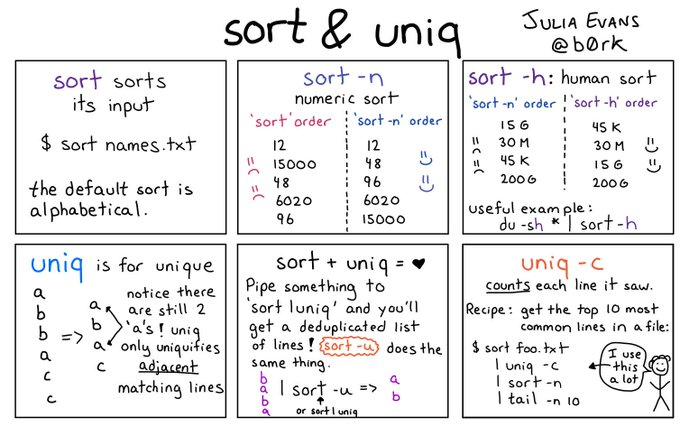 sort & uniq
JULIA EVANS
@b0rk
sort sorts
its input
$ sort names.txt
the default sort is
alphabetical.
sort -n
numeric sort
'sort' order
12
15000
48
6020
96
'sort -n' order
12
48
96
6020
15000
sort -h: human sort
'sort -n' order
15G
30M
45K
200G
'sort -h' order
45K
30M
15G
200G
useful example:
du -sh * | sort -h
uniq is for unique
a
b
b
a
c
c
=>
a
b
a
c
notice there
are still 2
'a's! uniq
only uniquifies
adjacent
matching lines
sort + uniq = ♥
Pipe something to
'sort | uniq' and you'll
get a deduplicated list
of lines! sort -u does the
same thing.
b
a
b
a
| sort -u =>
a
b
or sort | uniq
uniq -c
counts each line it saw.
Recipe: get the top 10 most
common lines in a file:
$ sort foo.txt
| uniq -c
| sort -n
| tail -n 10
I use
this
a lot